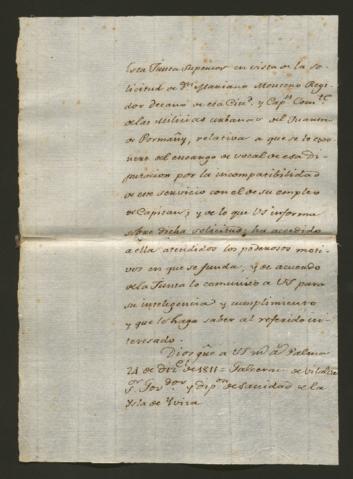 Esta Junta Superior en vista de la so-
licitud de Dn. Mariano Montero Regi-
dor Decano de esa Ciud. y Capn. Comte.
de las Milicias urbanas del Quarton
de Pormañy, relativa a que se le exo-
nere del encargo de vocal de esa Di-
putacion por la incompatibilidad
de este servicio con el de su empleo
de Capitan; y de lo que VS informa
sobre dicha solicitud; ha accedido
a ella atendidos los poderosos moti-
vos en que se funda, y de acuerdo
de la Junta lo comunico a VS para
su inteligencia y cumplimiento
y que lo haga saber al referido in-
teresado.
Dios gue. a VS m. as. Palma
21 de Dice. de 1811 =
Sr. Govdor. y Dipon. de Sanidad de la
Ysla de Yviza